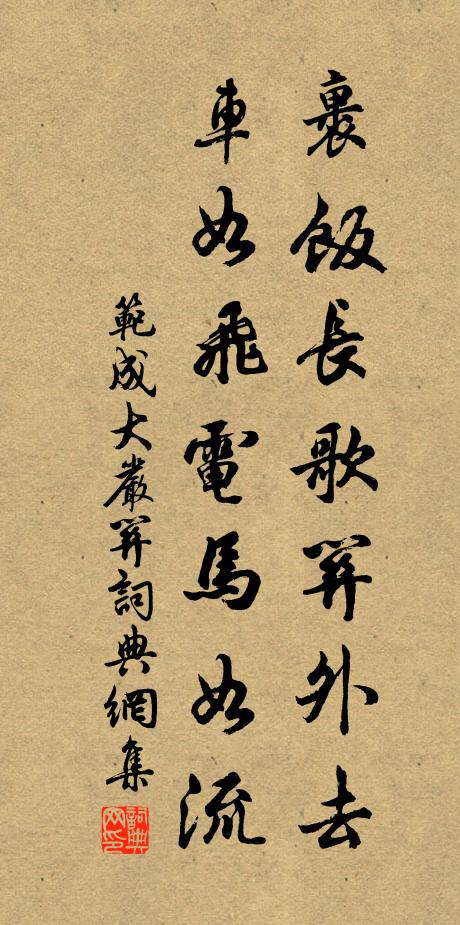 裹飯長歌關外去
車如飛電馬如流
範成大嚴關詞典網集
詞典网印